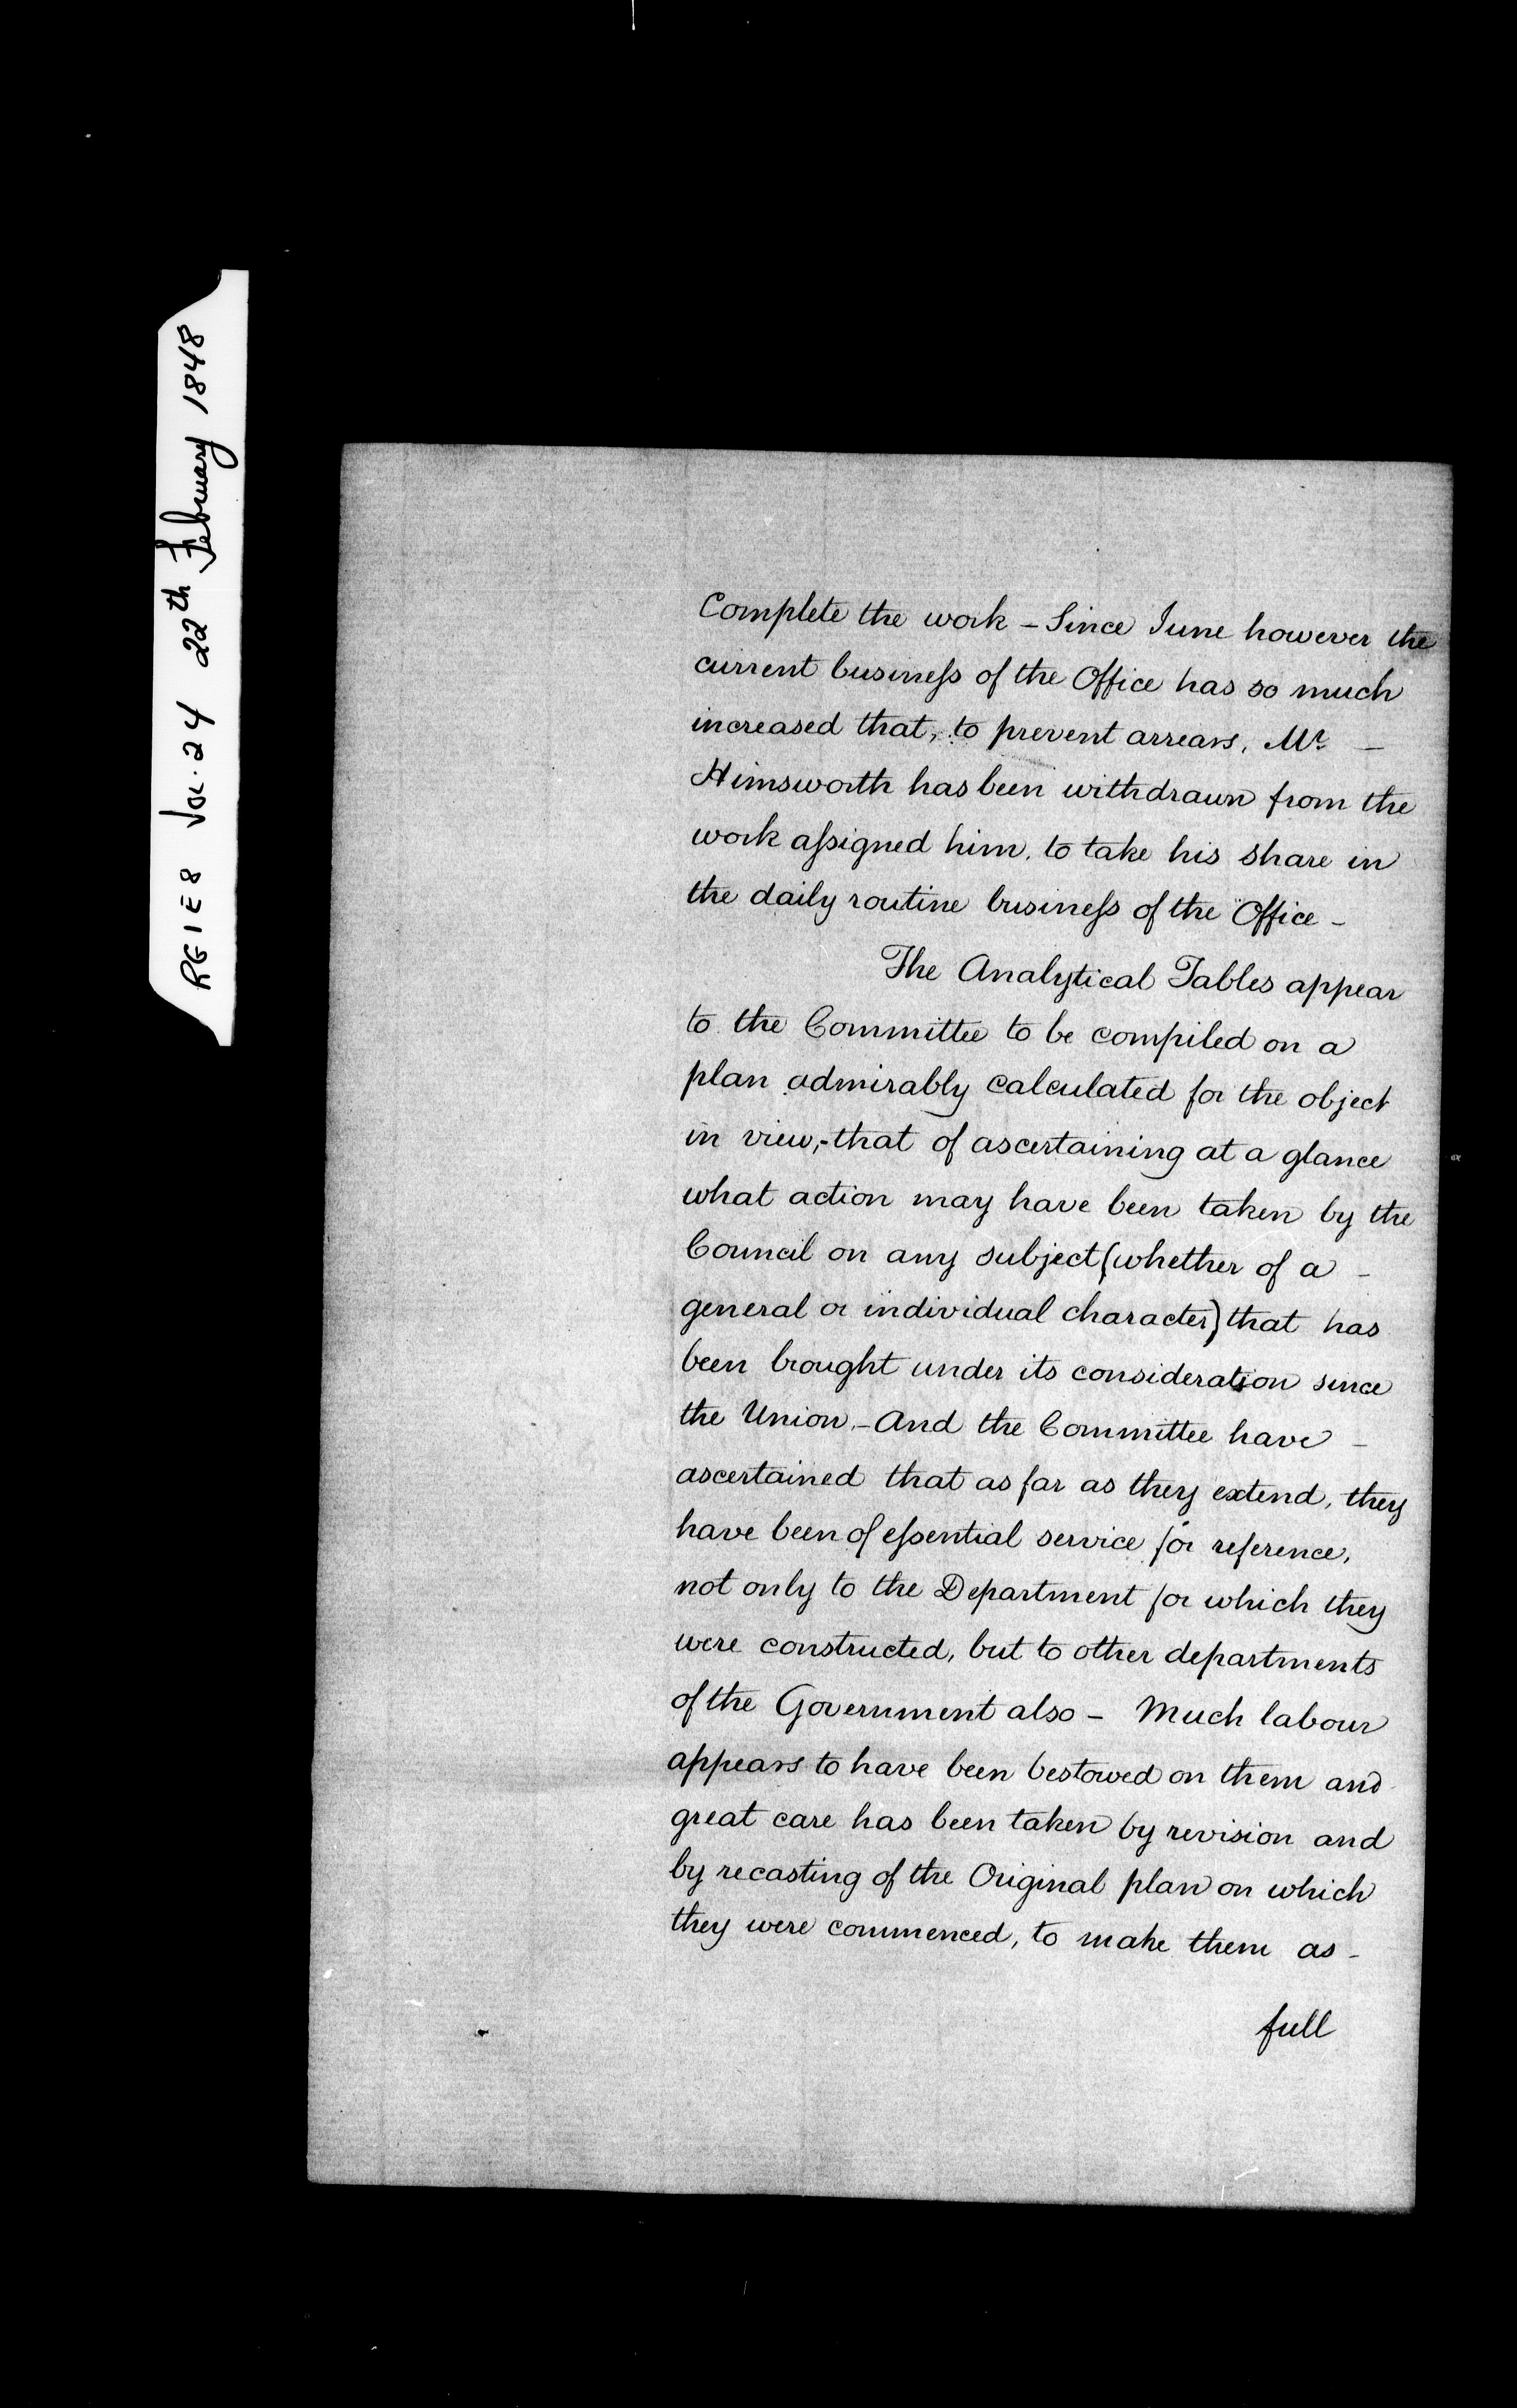 RG 1 E 8 Vol. 24 22th February 1848
Complete the work – Since June however the
current busineſs of the Office has so much
increased that, to prevent arrears, Mr –
Himsworth has been withdrawn from the
work aſsigned him, to take his share in
the daily routine busineſs of the Office –
The Analytical Tables appear
to the Committee to be compiled on a
plan admirably calculated for the object
in view,- that of ascertaining at a glance
what action may have been taken by the
Council on any subject (whether of a –
general or individual character) that has
been brought under its consideration since
the Union. – And the Committee have –
ascertained that as far as they extend, they
have been of eſsential service for reference,
not only to the Department for which they
were constructed, but to other departments
of the Government also – Much labour
appears to have been bestowed on them and
great care has been taken by revision and
by recasting of the Original plan on which
they were commenced, to make them as –
full